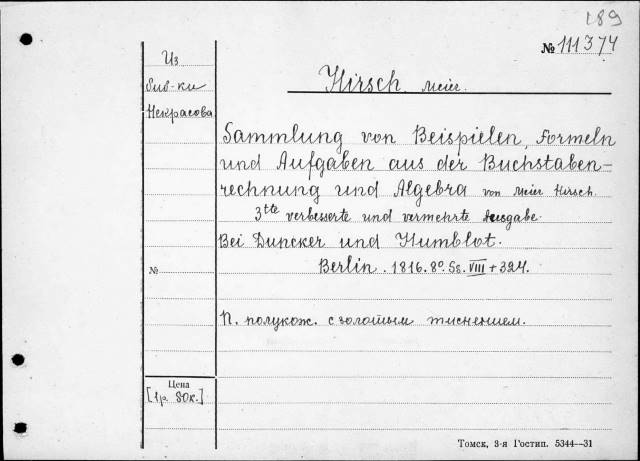 189
№ 111374
Из
биб-ки
Некрасова
Hirsch, Meier.
Sammlung von Beispielen, Formeln
und Aufgaben aus der Buchstaben-
rechnung und Algebra von Meier Hirsch.
3tte verbesserte und vermehrte Ausgabe.
Bei Duncker und Humblot.
Berlin. 1816. 8º. Ss. VIII + 324.
№
П. полукож. с золотым тиснением.
Цена
[1р. 80к.]
Томск, 3-я Гостип. 5344—31